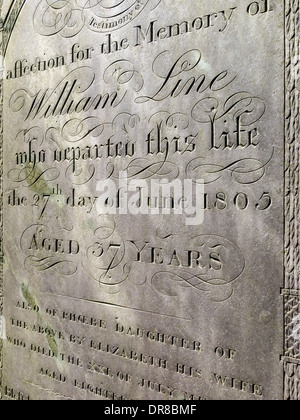 legitimony
affection for the Memory of
William Line
who departed this life
the 27th day of June 1805
AGED 37 YEARS
ALSO OF PHŒBE DAUGHTER OF
THE ABOVE BY ELIZABETH HIS WIFE
WHO DIED THE XXI. OF JULY
AGED EIGHTEEN
alamy
Image ID: 2R8BMF
www.alamy.com